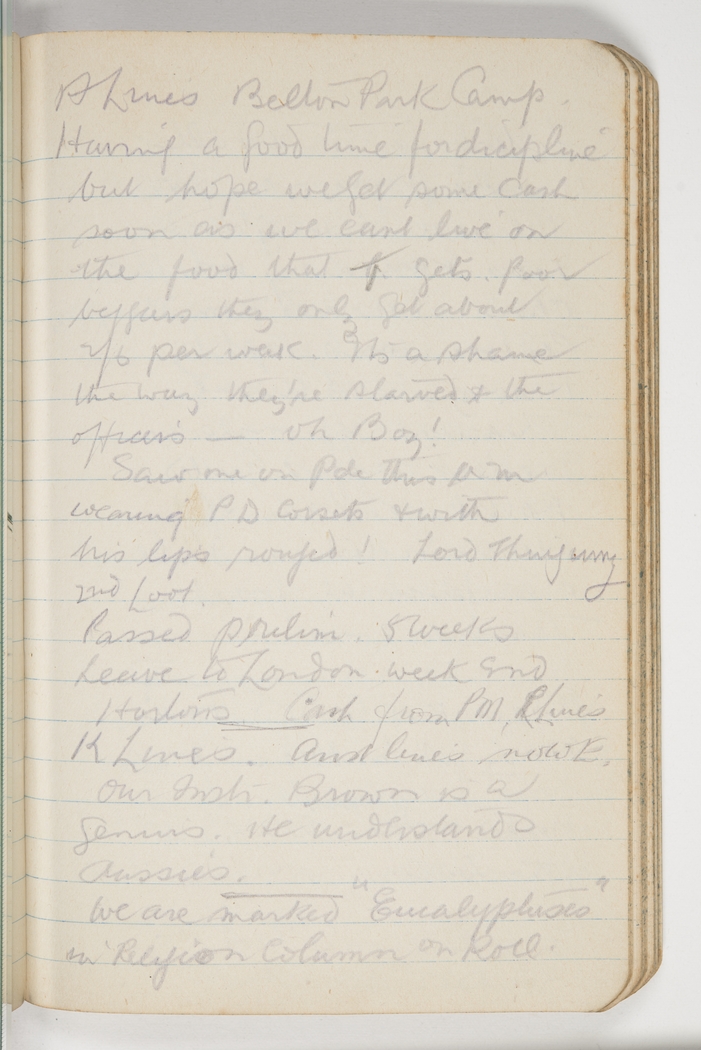 A Lines Belton Park Camp.
Having a good time for dicipline
but hope we get some cash
soon as we cant live on
the food that gets. Poor
beggars they only get about
2/6 per week. Its a shame
the way they're starved & the
officers — Oh Boy!
Saw one on Pde this a m
wearing P D Corsets & with
his lips rouged! Lord
2nd Loot.
Passed prelim. 5 weeks
Leave to London week end
Hortons. Cash from PM,
K Lines. Aust lines now K.
Our Instr. Brown is a
genius. He understands
Aussies.
We are marked "Eucalyptuses"
in Religion Column on Roll.